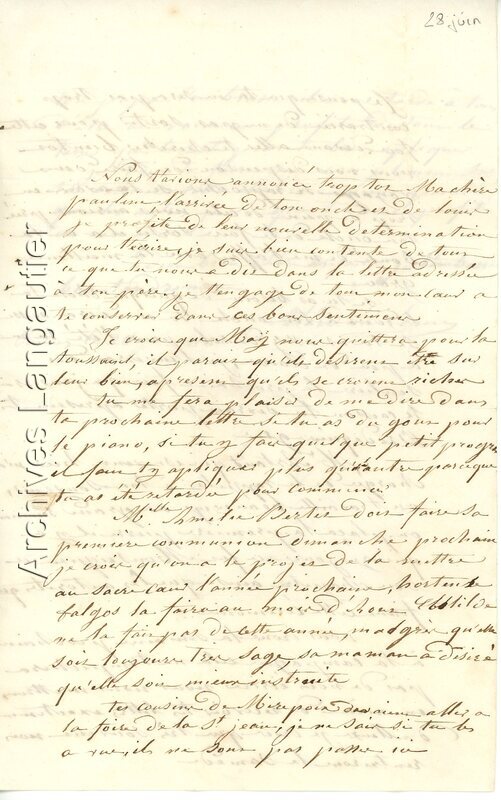 28 juin
Nous t'avions annoncé trop tot Ma chère
pauline, l'arrivée de ton oncle et de louis
je profite de leur nouvelle determination
pour t'écrire, je suis bien contente de tous
ce que tu nous a dis dans la lettre adressée
à ton père, je t'engage de tous mon cœur a
te conserver dans ces bons sentimens
Je crois que Mazy nous quittera pour la
toussaint, il parais qu'ils desirens être sur
leur bien, apresens qu'ils se croiens riches
tu me fera plaisir de me dire dans
ta prochaine lettre si tu as du gous pour
le piano, si tu y fais quelque petit progrès
il faus t'y apliquer plus qu'autre parceque
tu as été retardée pour commencer
Mlle Amelie Bertis dois faire sa
première communion dimanche prochain
je crois qu'on a le projes de la mettre
au sacré cœur l'année prochaine, hortense
falgos la faire au mois d'Aoux Clotilde
ne la fais pas de cette année, malgrés qu'elle
sois toujours tres sage, sa maman a désiré
qu'elle sois mieux instruite
tes cousins de Mirepoix devaiens aller a
la foire de la St jean, je ne sais si tu les
a vue, ils ne sons pas passés ici
Archives Langautier